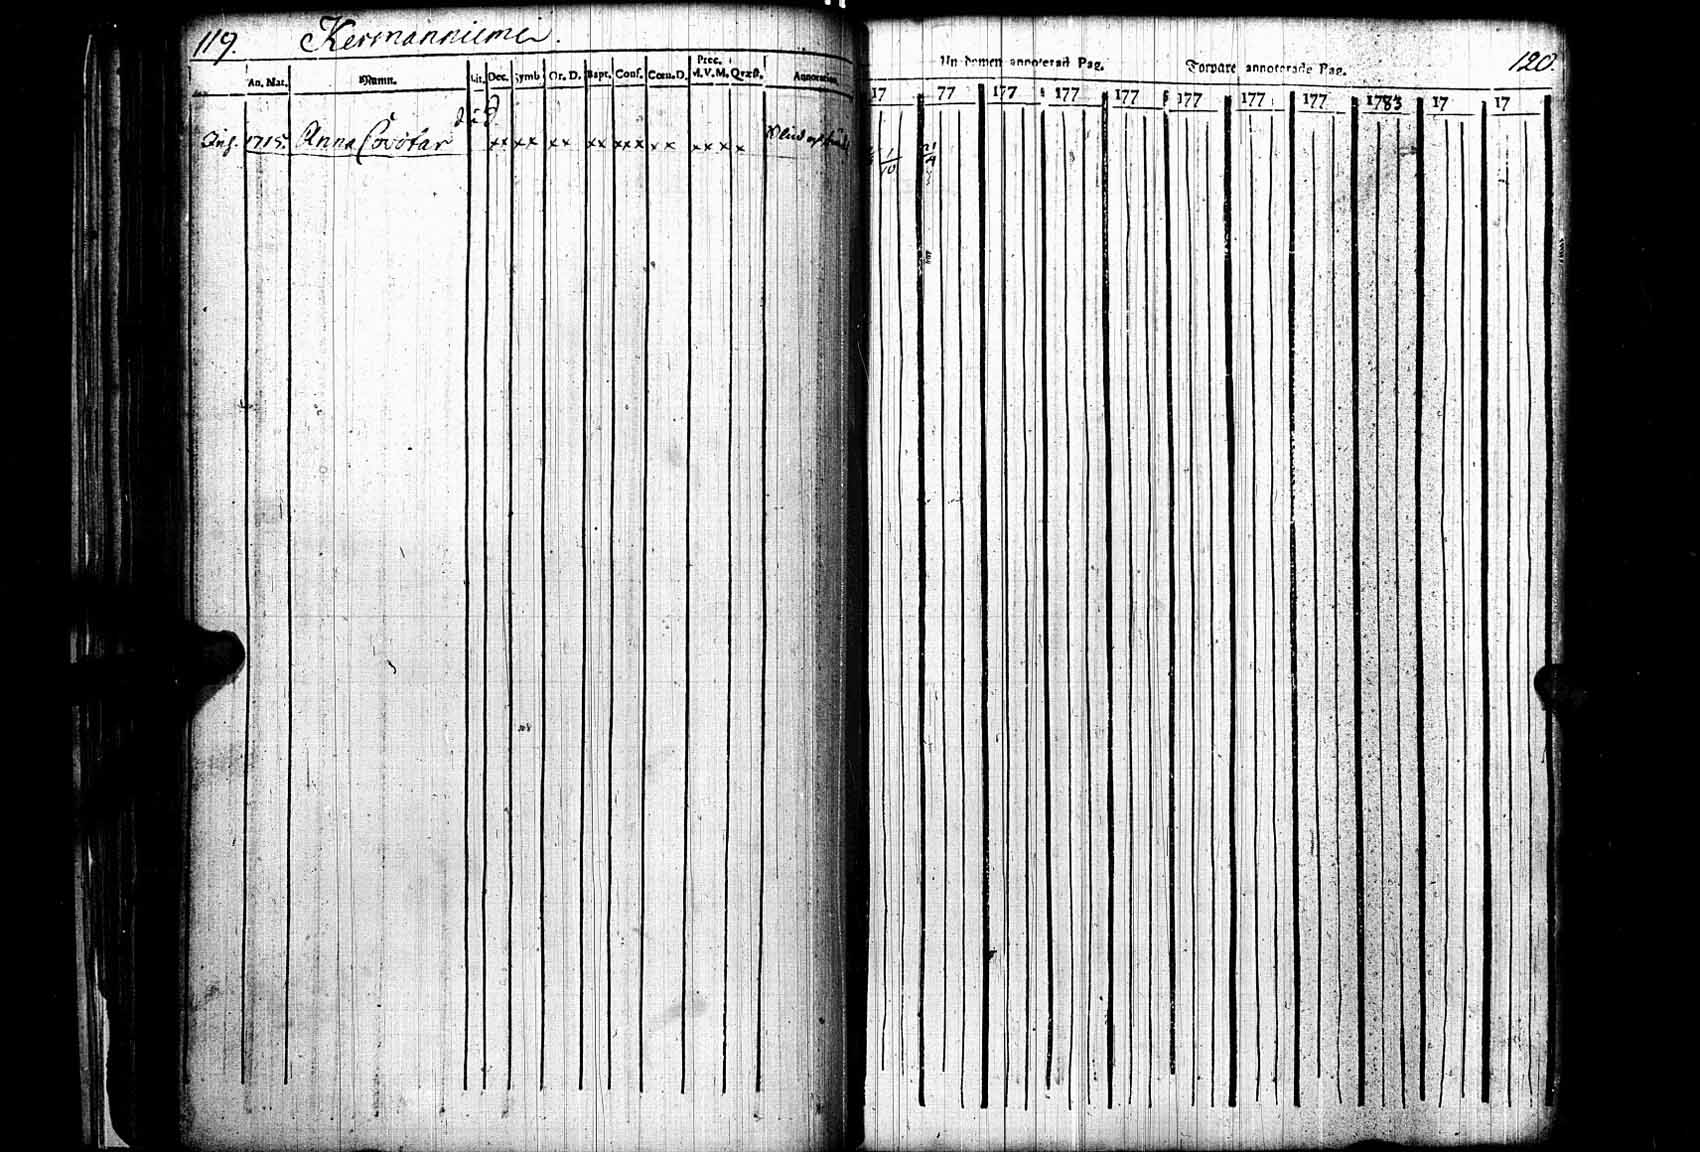 119. Kermanniemi.
An. Nat. Namn. Lit. Dec. Symb. Or. D. Bapt. Conf. Cœn. D. Prec. M. V. M. Qvæst. Annotation.
död
Inh. 1715. Anna Covotar xx xx xx xx xxx xx xx x x Blind och
120.
Un domen annoterad Pag. Torpare annoterade Pag.
17 77 177 177 177 177 177 177 1783 17 17
1/10 21/4